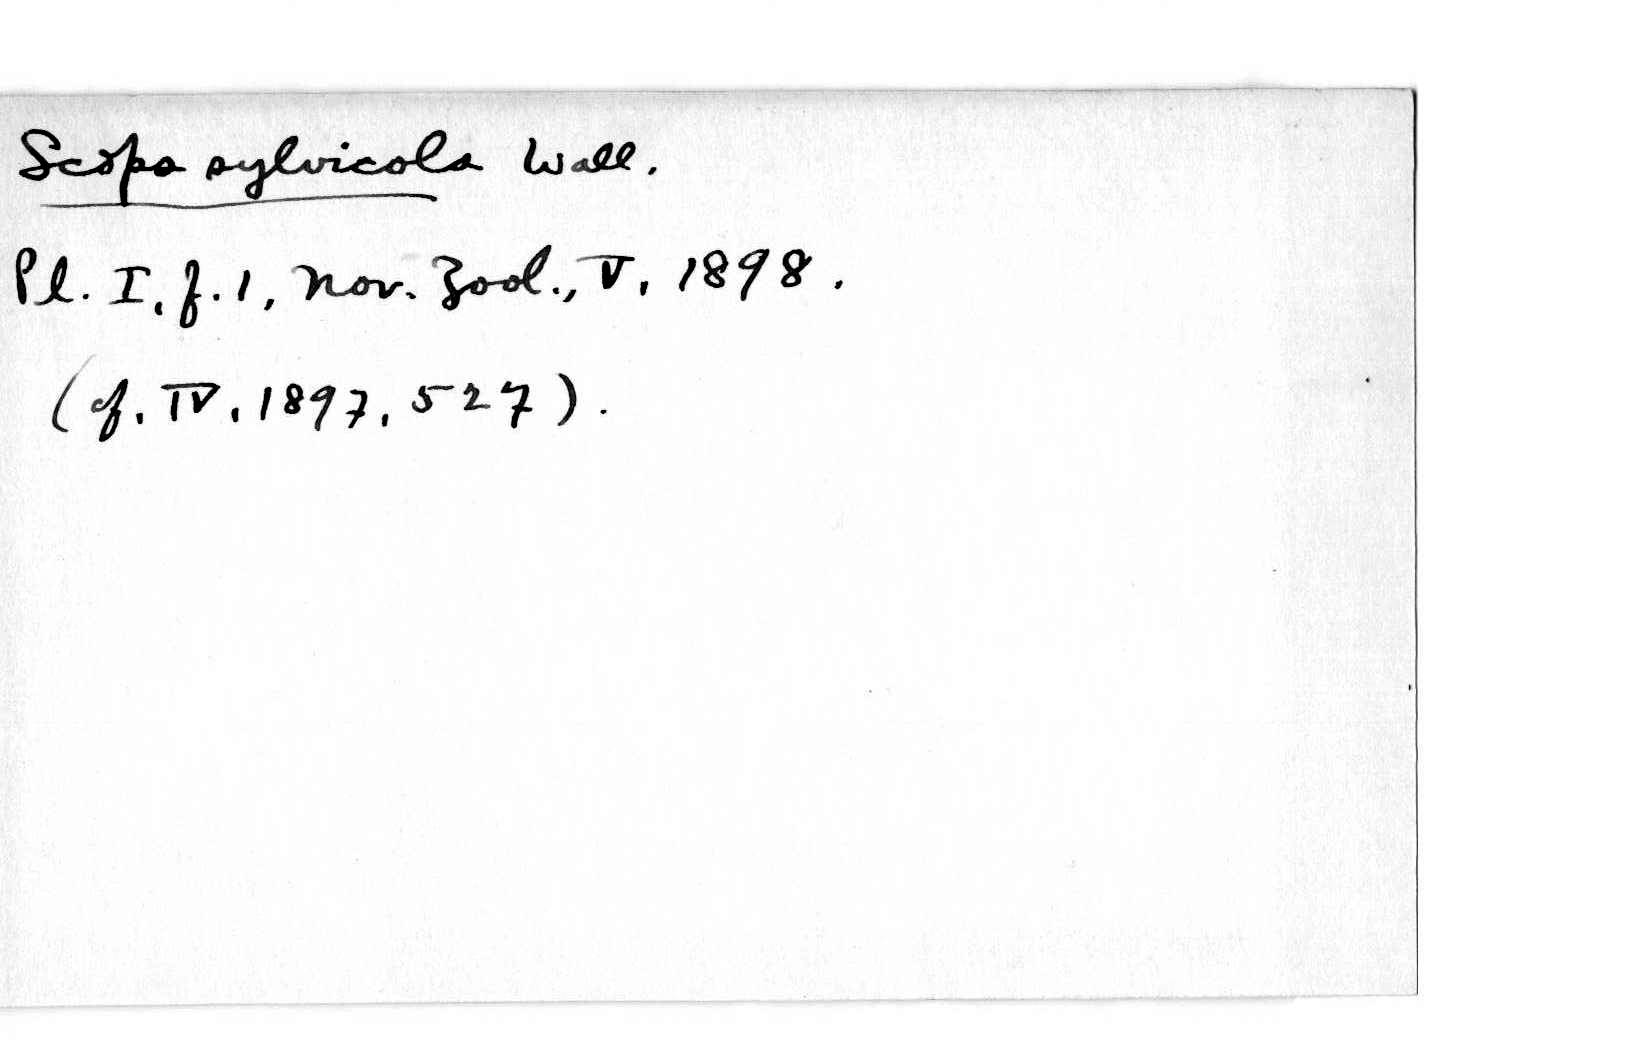 Scops sylvicola Wall.
Pl. I, f. 1, Nov. Zool., V, 1898.
(cf. IV, 1897, 527).